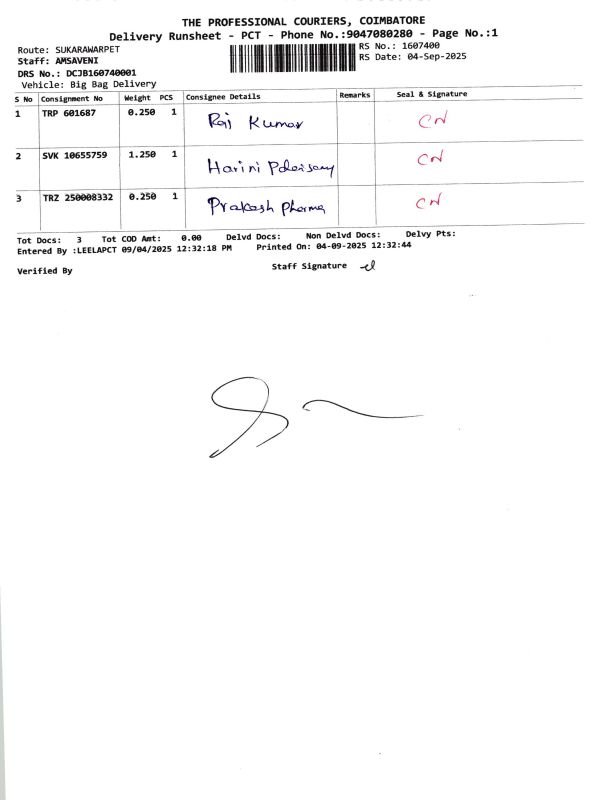 THE PROFESSIONAL COURIERS, COIMBATORE
Delivery Runsheet - PCT - Phone No.:9047080280 - Page No.:1
Route: SUKARAWARPET RS No.: 1607400
Staff: AMSAVENI RS Date: 04-Sep-2025
DRS No.: DCJB160740001
Vehicle: Big Bag Delivery
S No Consignment No Weight PCS Consignee Details Remarks Seal & Signature
1 TRP 601687 0.250 1 Raj Kumar CN
2 SVK 10655759 1.250 1 Harini CN
3 TRZ 250008332 0.250 1 Prakash Pharma CN
Tot Docs: 3 Tot COD Amt: 0.00 Delvd Docs: Non Delvd Docs: Delvy Pts:
Entered By :LEELAPCT 09/04/2025 12:32:18 PM Printed On: 04-09-2025 12:32:44
Verified By Staff Signature